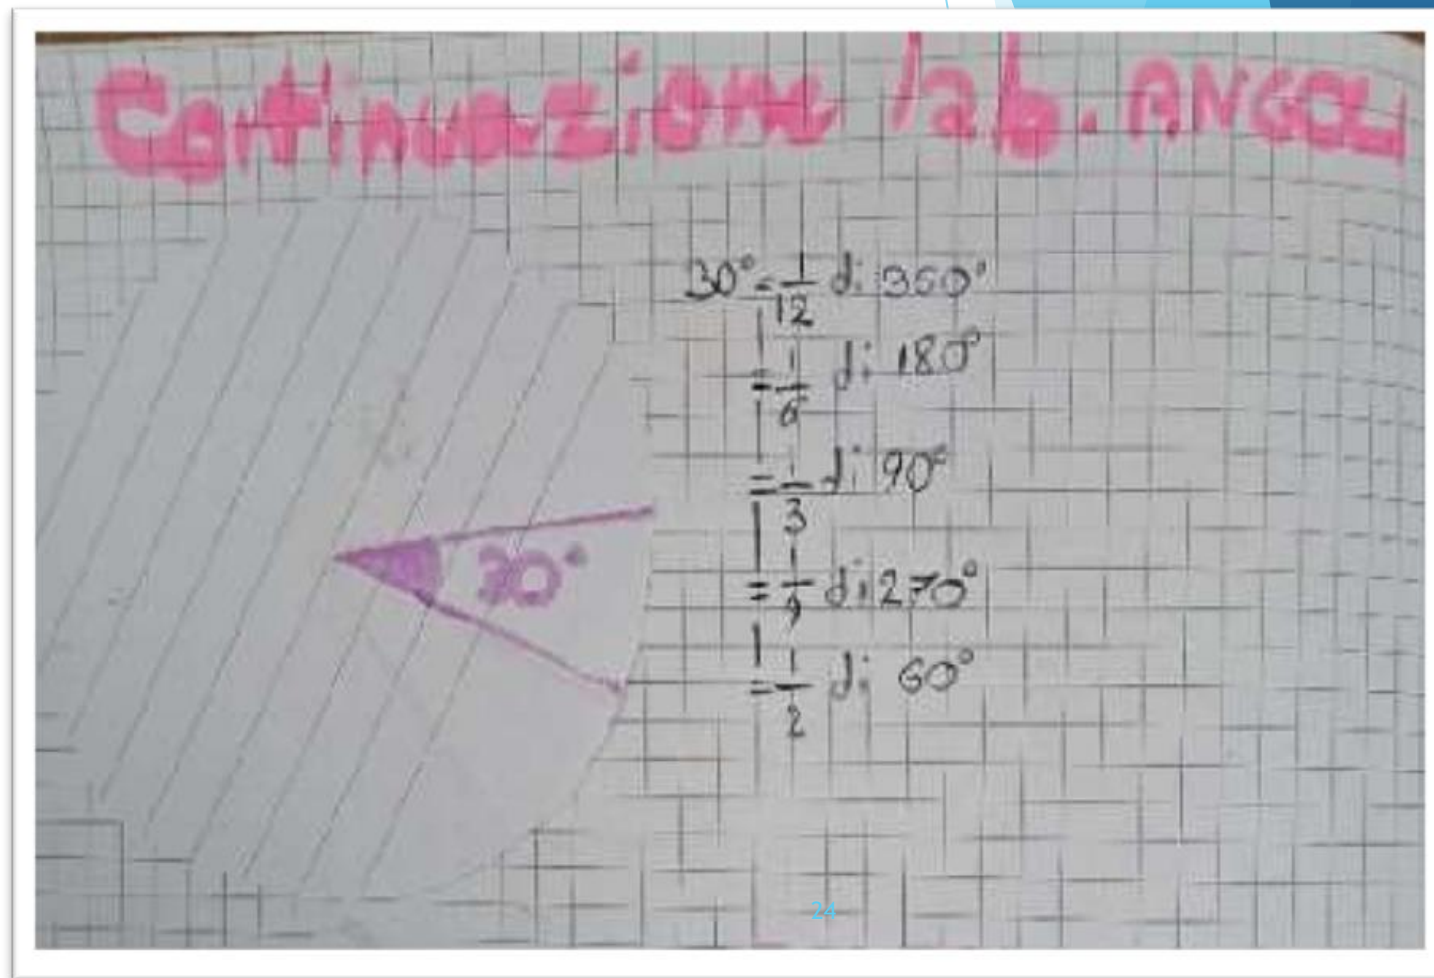 Continuazione lab. ANGOLI
30° = 1/12 di 360°
= 1/6 di 180°
= 1/3 di 90°
= 1/9 di 270°
= 1/2 di 60°
30°
24